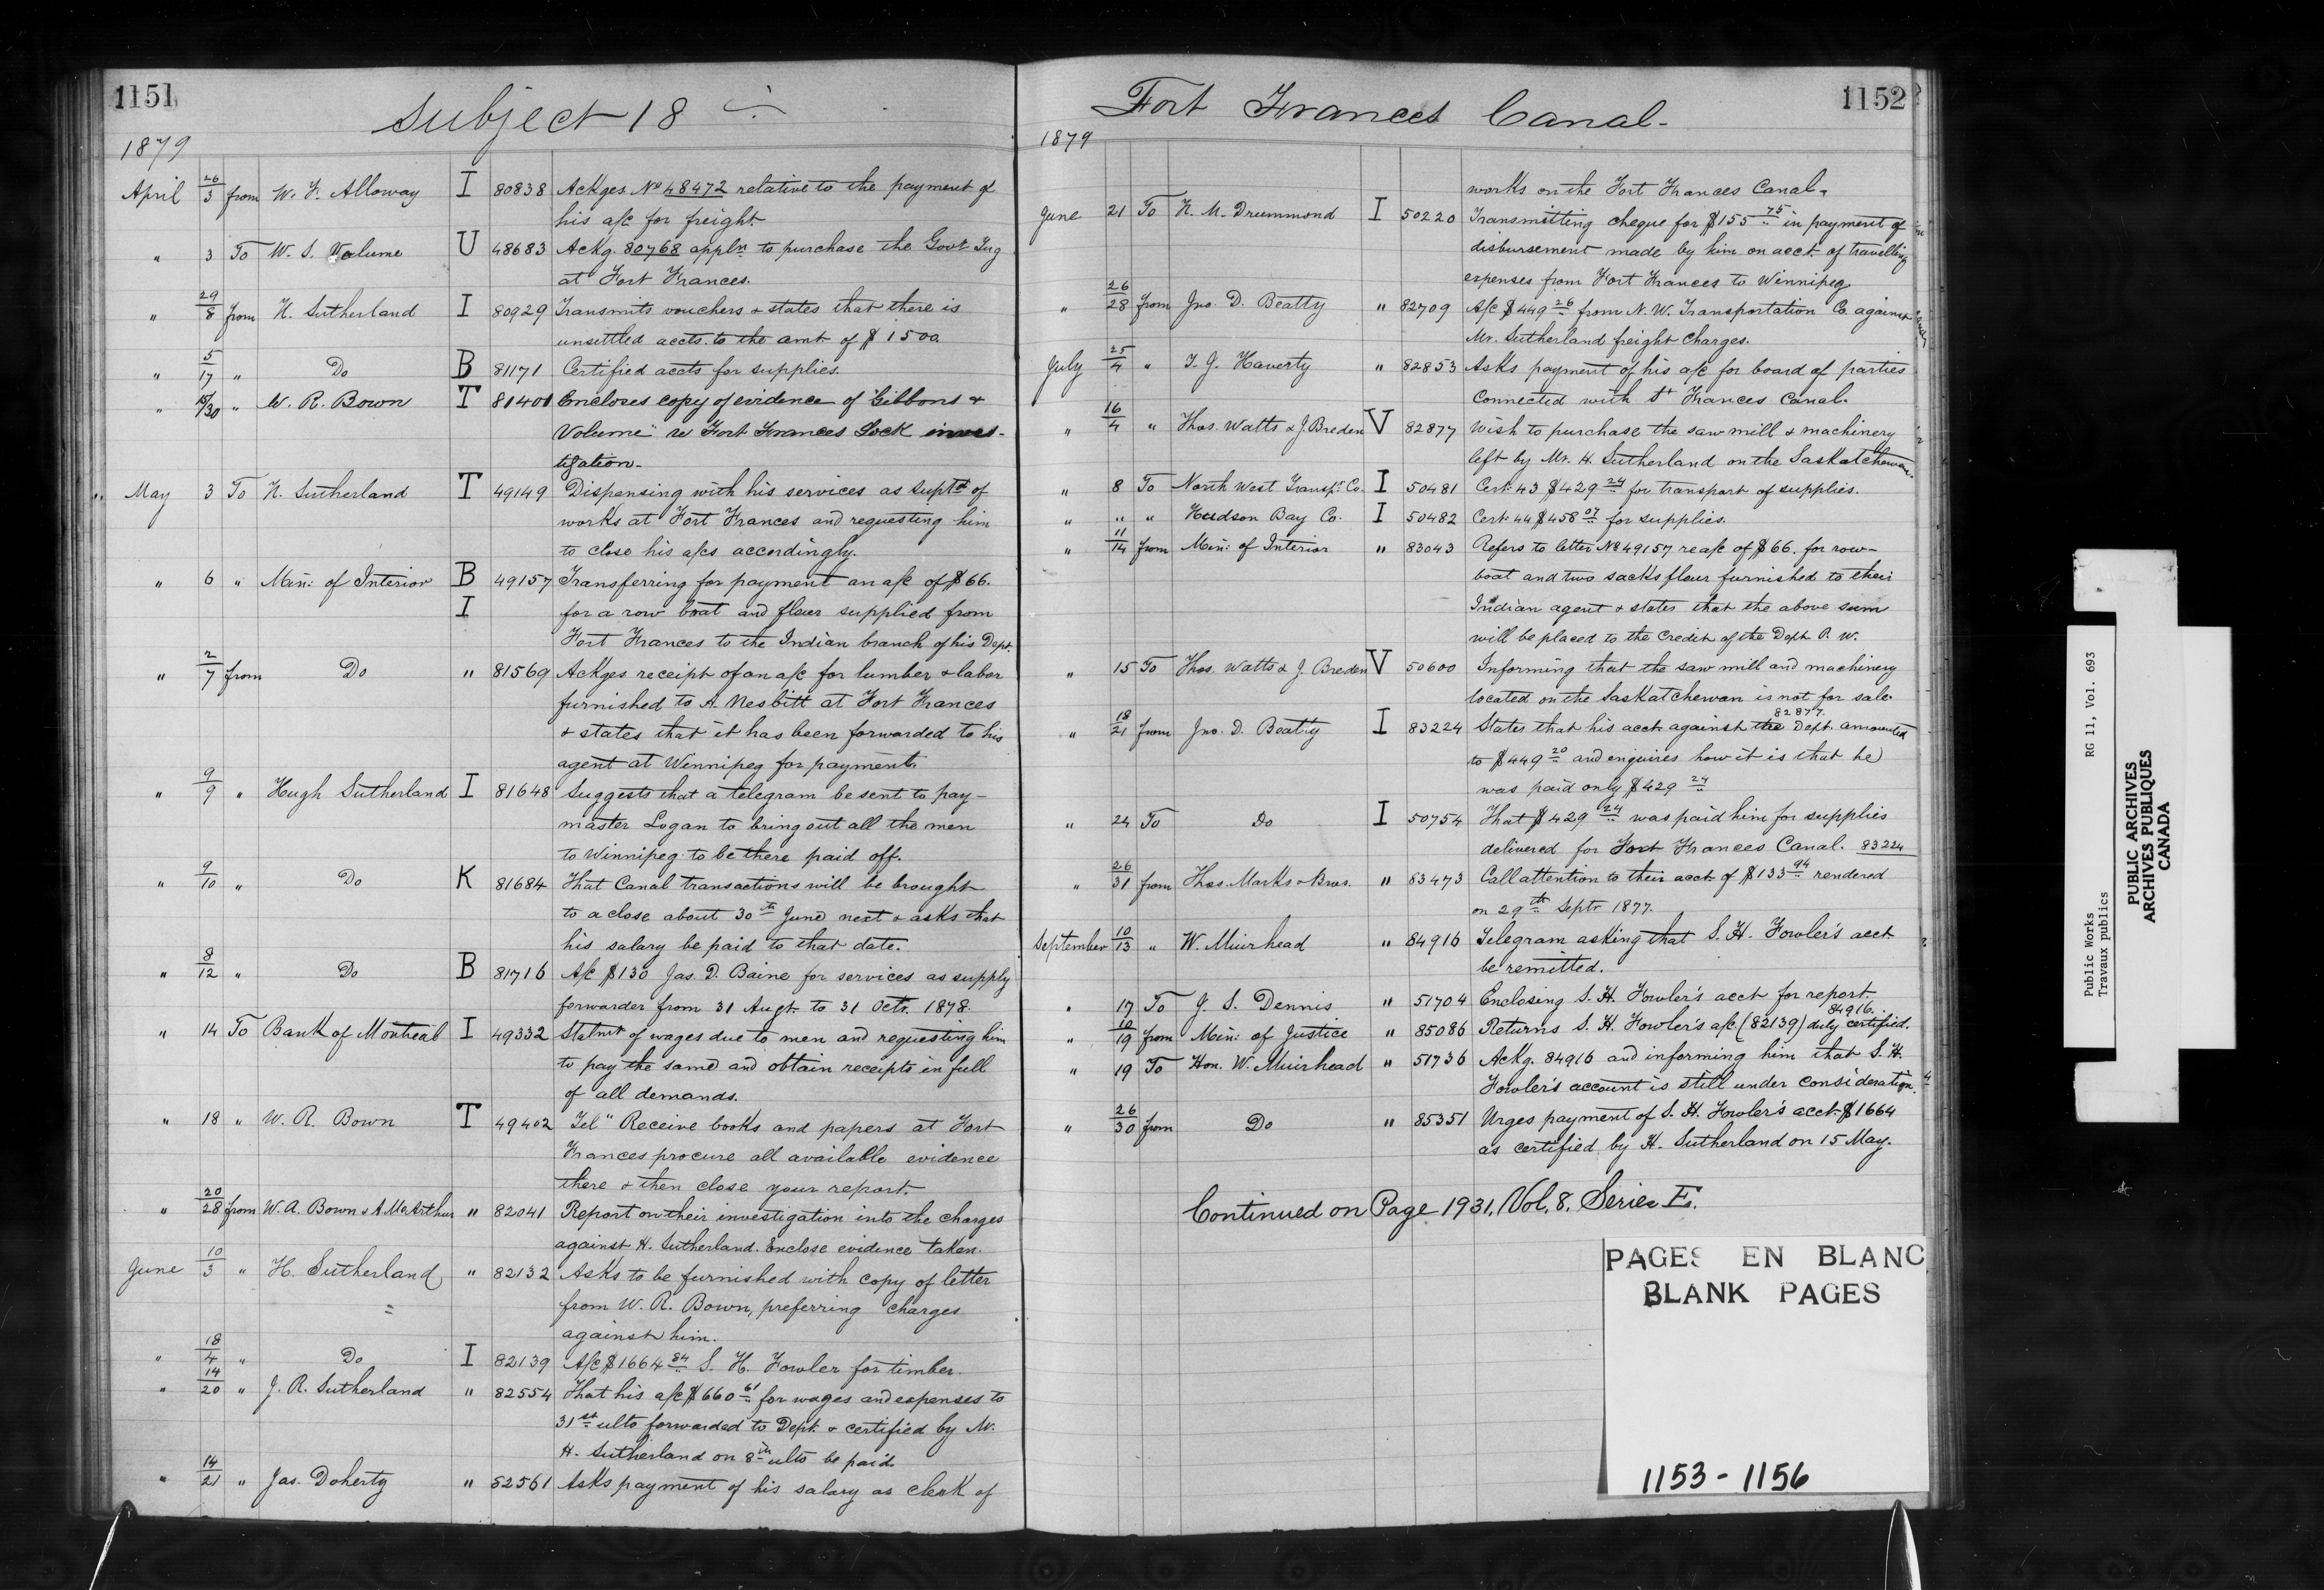 1151
Subject 18
1879
April 26/3 from W. F. Alloway I 80838 Ackges No 48472 relative to the payment of
his a/c for freight.
" 3 To W. S. Volume U 48683 Ackg. 80768 appln to purchase the Govt Tug
at Fort Frances.
" 29/8 from H. Sutherland I 80929 Transmits vouchers & states that there is
unsettled accts. to the amt of $1500
" 5/17 " Do B 81171 Certified accts for supplies.
" 15/30 " W. R. Bown T 81401 Encloses copy of evidence of "Gibbons &
Volume" re Fort Frances Lock inves-
tigation.
May 3 To H. Sutherland T 49149 Dispensing with his services as Suptd of
works at Fort Frances and requesting him
to close his a/cs accordingly.
" 6 " Min: of Interior B 49157 Transferring for payment an a/c of $66.
I for a row boat and flour supplied from
Fort Frances to the Indian branch of his Dept.
" 2/7 from Do " 81569 Ackges receipt of an a/c for lumber & labor
furnished to A. Nesbitt at Fort Frances
& states that it has been forwarded to his
agent at Winnipeg for payment.
" 9/9 " Hugh Sutherland I 81648 Suggests that a telegram be sent to pay-
master Logan to bring out all the men
to Winnipeg to be there paid off.
" 9/10 " Do K 81684 That Canal transactions will be brought
to a close about 30th June next & asks that
his salary be paid to that date.
" 8/12 " Do B 81716 A/c $130 Jas. D. Baine for services as supply
forwarder from 31 Augt. to 31 Octr. 1878.
" 14 To Bank of Montreal I 49332 Statmt of wages due to men and requesting him
to pay the same and obtain receipts in full
of all demands.
" 18 " W. R. Bown T 49402 Tel" Receive books and papers at Fort
Frances procure all available evidence
there & then close your report.
" 20/28 from W. A. Bown & A. McArthur " 82041 Report on their investigation into the charges
against H. Sutherland. Enclose evidence taken.
June 10/3 " H. Sutherland " 82132 Asks to be furnished with copy of letter
from W. R. Bown, preferring charges
against him.
" 18/4 " Do I 82139 A/c $1664 84 S. H. Fowler for timber.
" 14/20 " J. R. Sutherland " 82554 That his a/c $660 61 for wages and expenses to
31st ulto forwarded to Dept. & certified by Mr.
H. Sutherland on 8th ulto be paid.
" 14/21 " Jas. Doherty " 82561 Asks payment of his salary as clerk of
1152
Fort Frances Canal-
1879
works on the Fort Frances Canal.
June 21 To H. M. Drummond I 50220 Transmitting cheque for $155 75 in payment of
disbursement made by him on acct. of travelling
expenses from Fort Frances to Winnipeg
" 26/28 from Jno. D. Beatty " 82709 A/c $449 26 from N. W. Transportation Co. against
Mr. Sutherland freight charges.
July 25/4 " T. J. Haverty " 82853 Asks payment of his a/c for board of parties
connected with Ft Frances Canal.
" 16/4 " Thos. Watts & J Breden V 82877 Wish to purchase the saw mill & machinery
left by Mr. H. Sutherland on the Saskatchewan.
" 8 To North West Transpt. Co. I 50481 Cert. 43 $429 24 for transport of supplies.
" " " Hudson Bay Co. I 50482 Cert. 44 $458 07 for supplies.
" 11/14 from Min: of Interior " 83043 Refers to letter No 49157 re a/c of $66. for row-
boat and two sacks flour furnished to their
Indian agent & states that the above sum
will be placed to the credit of the Dept P. W.
" 15 To Thos. Watts & J. Breden V 50600 Informing that the saw mill and machinery
located on the Saskatchewan is not for sale.
82877.
" 18/21 from Jno. D. Beatty I 83224 States that his acct against the Dept. amounted
to $449 20 and enquires how it is that he
was paid only $429 24
" 24 To Do I 50754 That $429 24 was paid him for supplies
delivered for Fort Frances Canal. 83224
" 26/31 from Thos. Marks & Bros. " 83473 Call attention to their acct of $133 94 rendered
on 29th Septr 1877.
September 10/13 " W. Muirhead " 84916 Telegram asking that S. H. Fowler's acct.
be remitted.
" 17 To J. S. Dennis " 51704 Enclosing S. H. Fowler's acct for report.
84916.
" 10/19 from Min: of Justice " 85086 Returns S. H. Fowler's a/c (82139) duly certified.
" 19 To Hon. W. Muirhead " 51736 Ackg. 84916 and informing him that S. H.
Fowler's account is still under consideration.
" 26/30 from Do " 85351 Urges payment of S. H. Fowler's acct $1664
as certified by H. Sutherland on 15 May.
Continued on Page 1931. Vol. 8. Series E.
PAGES EN BLANC
BLANK PAGES
1153 - 1156
Public Works RG 11, Vol. 693
Travaux publics
PUBLIC ARCHIVES
ARCHIVES PUBLIQUES
CANADA